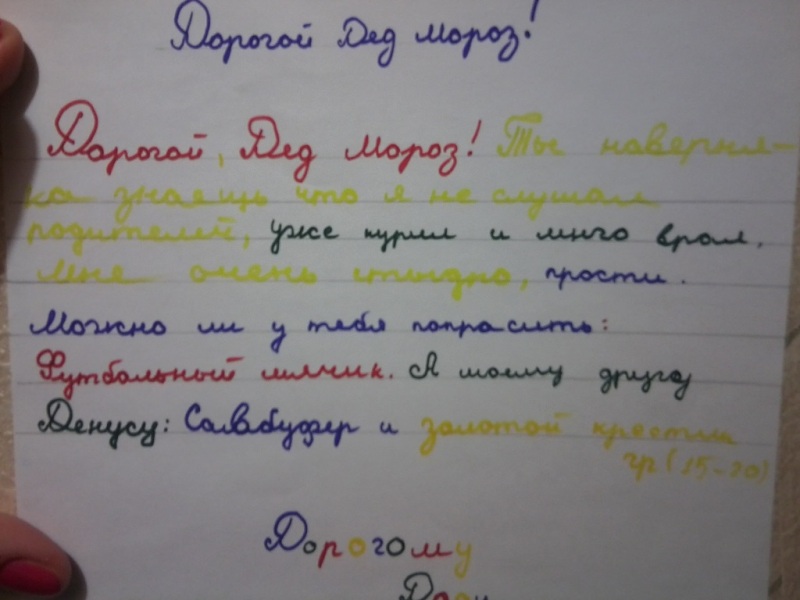 Дорогой Дед Мороз!
Дорогой, Дед Мороз! Ты наверня-
ка знаешь что я не слушал
родителей, уже курил и мнго врал.
Мне очень стыдно, прости.
Можно ли у тебя попросить:
Футбольный мячик. А моему другу
Денусу: Сабвуфер и золотой крестик
гр (15-20)
Дорогому
Деду